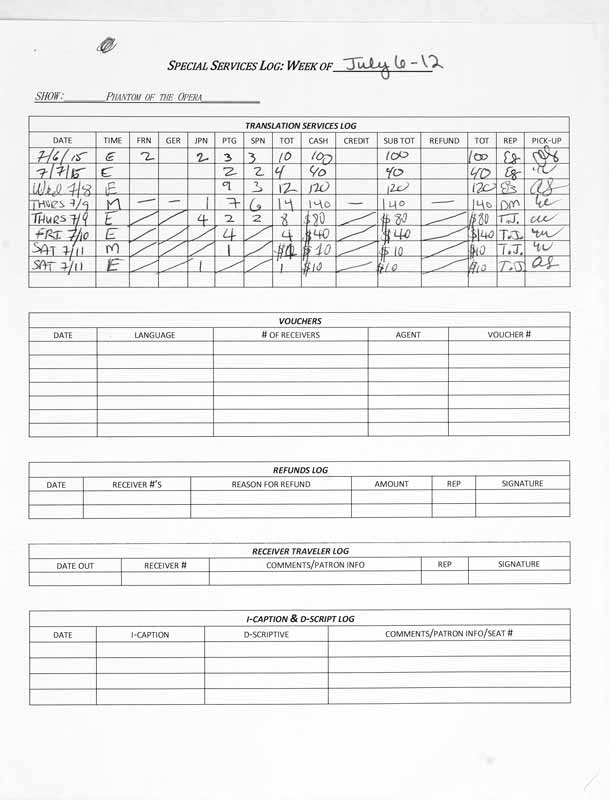 SPECIAL SERVICES LOG: WEEK OF July 6-12
SHOW: PHANTOM OF THE OPERA
TRANSLATION SERVICES LOG
DATE TIME FRN GER JPN PTG SPN TOT CASH CREDIT SUB TOT REFUND TOT REP PICK-UP
7/6/15 E 2 2 3 3 10 100 100 100 Eg
7/7/15 E 2 2 4 40 40 40 Eg
Wed 7/8 E 9 3 12 120 120 120 Eg as
THURS 7/9 M — — 1 7 6 14 140 — 140 — 140 DM
THURS 7/9 E 4 2 2 8 $80 $80 $80 T.J.
FRI 7/10 E 4 4 $40 $40 $40 T.J.
SAT 7/11 M 1 1 $10 $10 $10 T.J.
SAT 7/11 E 1 1 $10 $10 $10 T.J as
VOUCHERS
DATE LANGUAGE # OF RECEIVERS AGENT VOUCHER #
REFUNDS LOG
DATE RECEIVER #'S REASON FOR REFUND AMOUNT REP SIGNATURE
RECEIVER TRAVELER LOG
DATE OUT RECEIVER # COMMENTS/PATRON INFO REP SIGNATURE
I-CAPTION & D-SCRIPT LOG
DATE I-CAPTION D-SCRIPTIVE COMMENTS/PATRON INFO/SEAT #